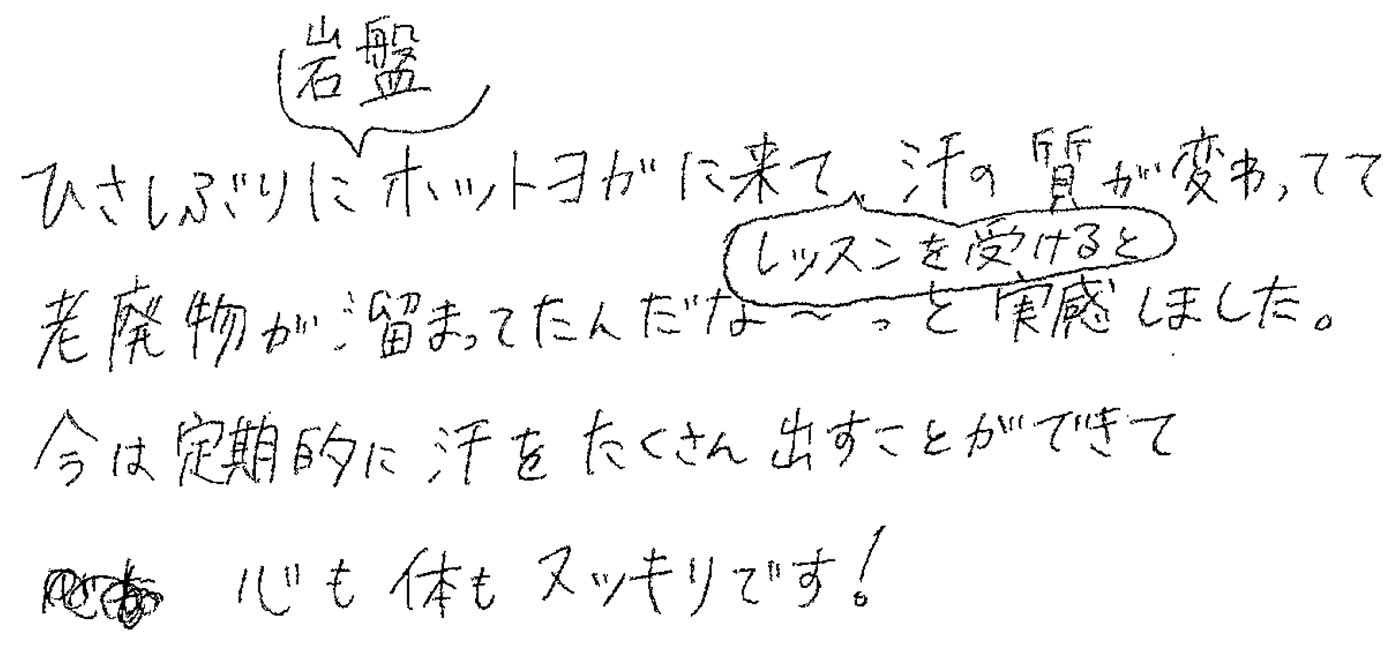 岩盤
ひさしぶりにホットヨガに来て、汗の質が変わってて
レッスンを受けると
老廃物が溜まってたんだな〜っと実感しました。
今は定期的に汗をたくさん出すことができて
心も体もスッキリです!